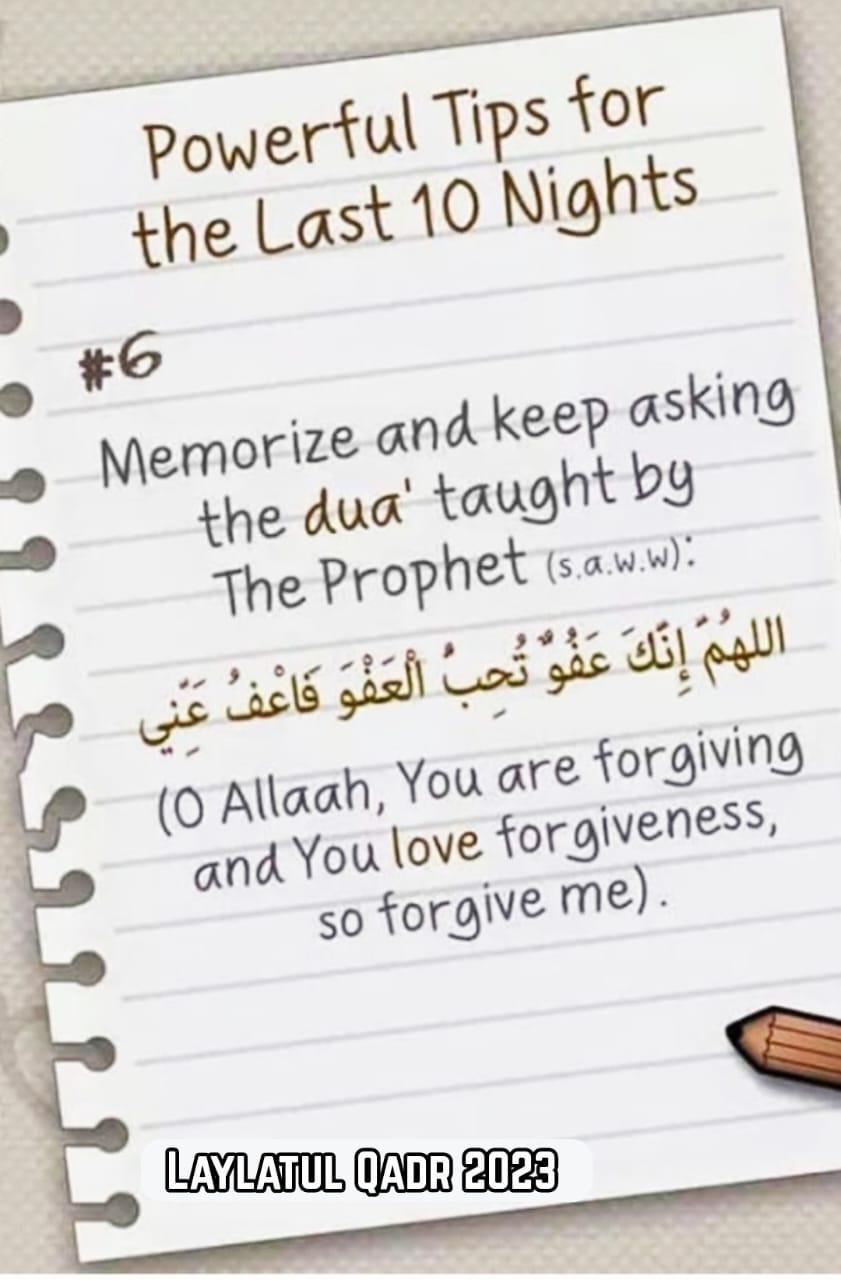 Powerful Tips for
the Last 10 Nights
#6
Memorize and keep asking
the dua' taught by
The Prophet (s.a.w.w):
اللهُمَّ إِنَّكَ عَفُوٌّ تُحِبُّ الْعَفْوَ فَاعْفُ عَنِّي
(O Allaah, You are forgiving
and You love forgiveness,
so forgive me).
LAYLATUL QADR 2023